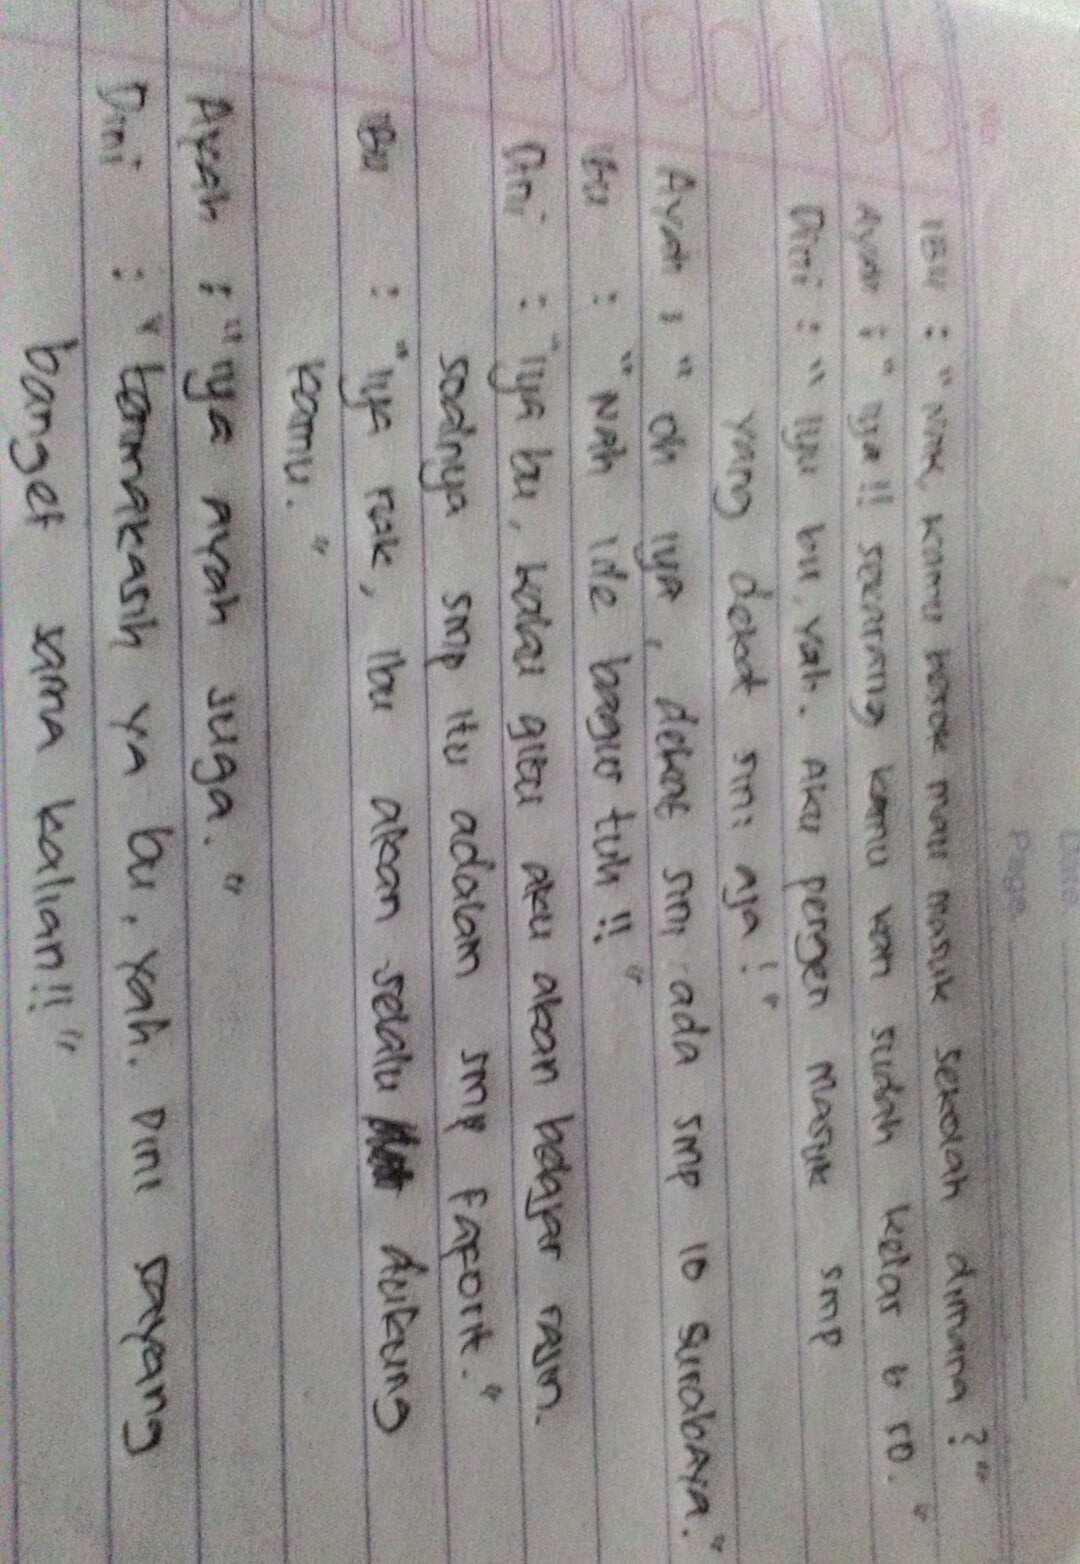 No.
Date
Page
IBU : "Nak, kamu besok mau masuk sekolah dimana ?"
Ayah : "iya !! sekarang kamu kan sudah kelar 6 SD."
Dini : "Iya bu, yah. Aku pengen masuk smp
yang deket sini aja !"
Ayah : "oh iya, deket sini ada smp 10 Surabaya."
Ibu : "Nah ide bagus tuh !!"
Dini : "Iya bu, kalau gitu aku akan belajar rajin.
soalnya smp itu adalah smp faforit."
Ibu : "Iya nak, Ibu akan selalu dukung
kamu."
Ayah : "iya ayah juga."
Dini : "terimakasih ya bu, yah. Dini sayang
banget sama kalian!!"